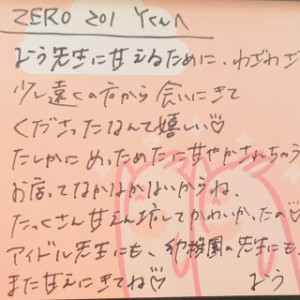 ZERO 201 Yくん
どう先生に甘えるために、わざわざ
少し遠くの方から会いにきて
くださったなんて嬉しい♡
たしかにめっためたに甘やかされちゃう
お店ってなかなかないからね、
たっくさん甘えん坊してかわいかったの♡
アイドル先生にも、幼稚園の先生にも、
また甘えにきてね♡
どう